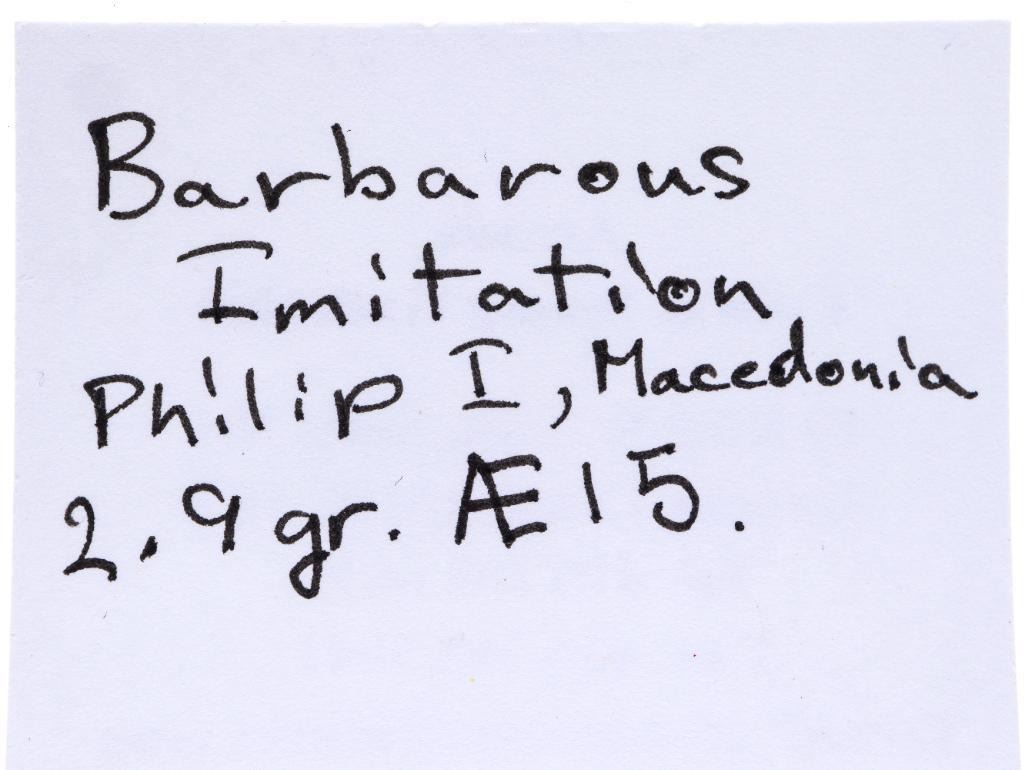 Barbarous
Imitation
Philip I, Macedonia
2.9 gr. Æ15.